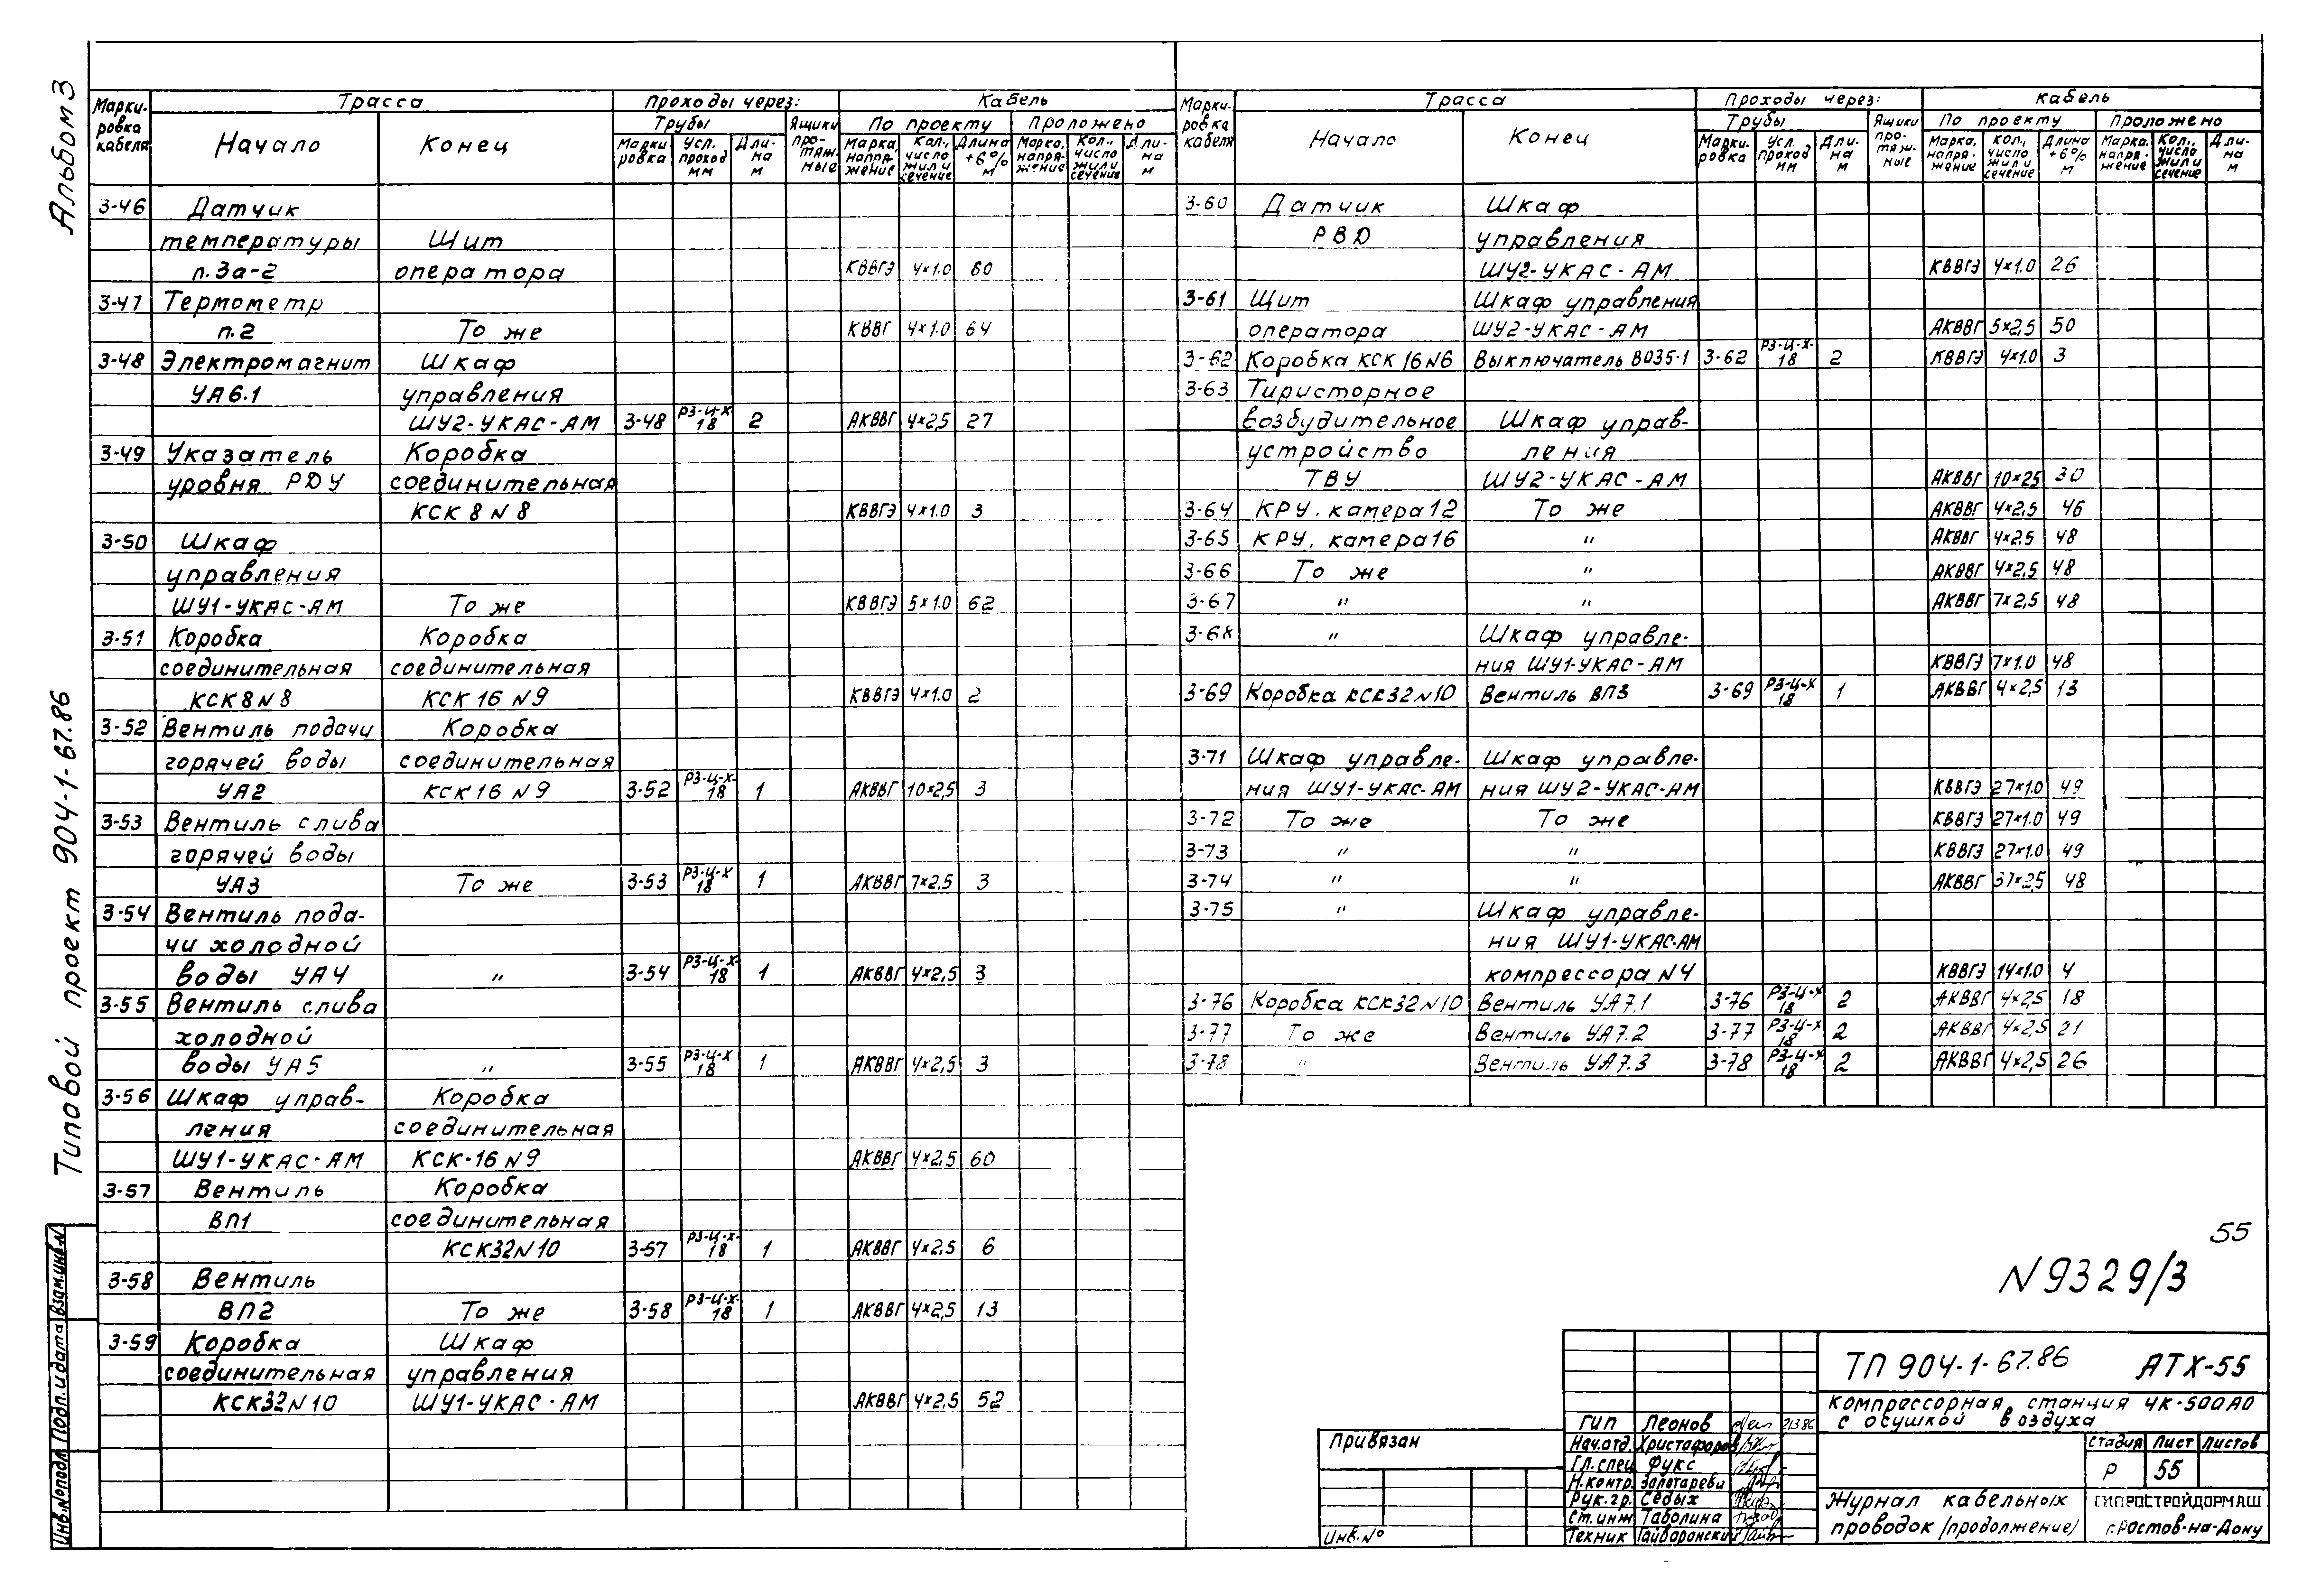 Альбом 3
Типовой проект 904-1-67.86
Взам.инв.N
Подп.и дата
Инв.Nº подл
Марки-ровка кабеля | Трасса | Проходы через: | Кабель
Начало | Конец | Трубы | Ящики про-тяж-ные | По проекту | Проложено
Марки-ровка | Усл. проход мм | Дли-на м | Марка, напря-жение | Кол., число жил и сечение | Длина +6% м | Марка, напря-жение | Кол., число жил и сечение | Дли-на м
3-46 Датчик
температуры Щит
п.3а-2 оператора КВВГЭ 4×1.0 60
3-47 Термометр
п.2 То же КВВГ 4×1.0 64
3-48 Электромагнит Шкаф
УА6.1 управления
ШУ2-УКАС-АМ 3-48 РЗ-Ц-Х 18 2 АКВВГ 4×2,5 27
3-49 Указатель Коробка
уровня РДУ соединительная
КСК 8 N 8 КВВГЭ 4×1.0 3
3-50 Шкаф
управления
ШУ1-УКАС-АМ То же КВВГЭ 5×1.0 62
3-51 Коробка Коробка
соединительная соединительная
КСК 8 N 8 КСК 16 N 9 КВВГЭ 4×1.0 2
3-52 Вентиль подачи Коробка
горячей воды соединительная
УА2 КСК 16 N 9 3-52 РЗ-Ц-Х-18 1 АКВВГ 10×2,5 3
3-53 Вентиль слива
горячей воды
УА3 То же 3-53 РЗ-Ц-Х 18 1 АКВВГ 7×2,5 3
3-54 Вентиль пода-
чи холодной
воды УА4 " 3-54 РЗ-Ц-Х-18 1 АКВВГ 4×2,5 3
3-55 Вентиль слива
холодной
воды УА5 " 3-55 РЗ-Ц-Х 18 1 АКВВГ 4×2,5 3
3-56 Шкаф управ- Коробка
ления соединительная
ШУ1-УКАС-АМ КСК-16 N 9 АКВВГ 4×2,5 60
3-57 Вентиль Коробка
ВП1 соединительная
КСК32 N 10 3-57 РЗ-Ц-Х-18 1 АКВВГ 4×2,5 6
3-58 Вентиль
ВП2 То же 3-58 РЗ-Ц-Х-18 1 АКВВГ 4×2,5 13
3-59 Коробка Шкаф
соединительная управления
КСК32 N 10 ШУ1-УКАС-АМ АКВВГ 4×2,5 52
Марки-ровка кабеля | Трасса | Проходы через: | Кабель
Начало | Конец | Трубы | Ящики про-тяж-ные | По проекту | Проложено
Марки-ровка | Усл. проход мм | Дли-на м | Марка, напря-жение | Кол., число жил и сечение | Длина +6% м | Марка, напря-жение | Кол., число жил и сечение | Дли-на м
3-60 Датчик Шкаф
РВД управления
ШУ2-УКАС-АМ КВВГЭ 4×1.0 26
3-61 Щит Шкаф управления
оператора ШУ2-УКАС-АМ АКВВГ 5×2,5 50
3-62 Коробка КСК 16 N 6 Выключатель ВО35-1 3-62 РЗ-Ц-Х-18 2 КВВГЭ 4×1.0 3
3-63 Тиристорное
возбудительное Шкаф управ-
устройство ления
ТВУ ШУ2-УКАС-АМ АКВВГ 10×25 30
3-64 КРУ. камера 12 То же АКВВГ 4×2.5 46
3-65 КРУ. камера 16 " АКВВГ 4×2.5 48
3-66 То же " АКВВГ 4×2,5 48
3-67 " " АКВВГ 7×2,5 48
3-68 " Шкаф управле-
ния ШУ1-УКАС-АМ КВВГЭ 7×1.0 48
3-69 Коробка КСК32 N 10 Вентиль ВП3 3-69 РЗ-Ц-Х 18 1 АКВВГ 4×2,5 13
3-71 Шкаф управле- Шкаф управле-
ния ШУ1-УКАС-АМ ния ШУ2-УКАС-АМ КВВГЭ 27×1.0 49
3-72 То же То же КВВГЭ 27×1.0 49
3-73 " " КВВГЭ 27×1.0 49
3-74 " " АКВВГ 37×2,5 48
3-75 " Шкаф управле-
ния ШУ1-УКАС-АМ
компрессора N 4 КВВГЭ 14×1.0 4
3-76 Коробка КСК32 N 10 Вентиль УА7.1 3-76 РЗ-Ц-Х 18 2 АКВВГ 4×2,5 18
3-77 То же Вентиль УА7.2 3-77 РЗ-Ц-Х 18 2 АКВВГ 4×2,5 21
3-78 " Вентиль УА7.3 3-78 РЗ-Ц-Х 18 2 АКВВГ 4×2,5 26
55
N 9329/3
ТП 904-1-67.86 АТХ-55
Компрессорная станция 4К-500А0
с осушкой воздуха
Стадия Лист Листов
Р 55
Журнал кабельных
проводок /продолжение/
ГИПРОСТРОЙДОРМАШ
г.Ростов-на-Дону
ГИП Леонов 21.3.86
Нач.отд. Христофоров
Гл.спец Фукс
Н.контр. Золотареви
Рук.гр. Седых
Ст.инж Таболина
Техник Гайваронский
Привязан
Инв.Nº